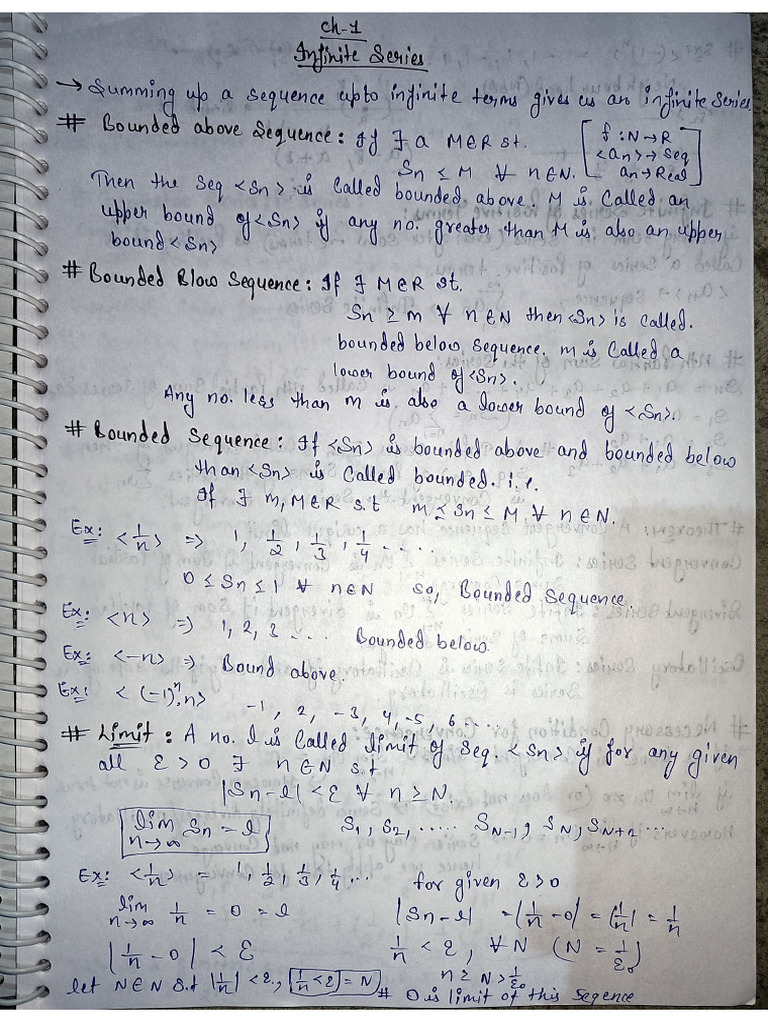 Ch-1
Infinite Series
→ Summing up a sequence upto infinite terms gives us an infinite series.
# Bounded above Sequence: If ∃ a M∈R st. [ f: N→R
Sn ≤ M ∀ n∈N. <an>→ Seq
an → Real ]
Then the Seq <Sn> is called bounded above. M is called an
upper bound of <Sn> if any no. greater than M is also an upper
bound <Sn>
# Bounded Blow Sequence: If ∃ M∈R st.
Sn ≥ m ∀ n∈N then <Sn> is called.
bounded below sequence. m is called a
lower bound of <Sn>.
Any no. less than m is also a lower bound of <Sn>.
# Bounded Sequence: If <Sn> is bounded above and bounded below
than <Sn> is called bounded. i.e.
If ∃ m, M∈R s.t m ≤ Sn ≤ M ∀ n∈N.
Ex: <1/n> ⇒ 1, 1/2, 1/3, 1/4 ....
0 ≤ Sn ≤ 1 ∀ n∈N so, Bounded Sequence.
Ex: <n> ⇒ 1, 2, 3 .... Bounded below.
Ex: <-n> ⇒ Bound above.
Ex: <(-1)^n.n> -1, 2, -3, 4, -5, 6 ....
# Limit: A no. l is called limit of Seq. <Sn> if for any given
all ε>0 ∃ n∈N s.t
|Sn-l| < ε ∀ n ≥ N.
lim n→∞ Sn = l S1, S2, ..... SN-1, SN, SN+2 ...
Ex: <1/n> = 1, 1/2, 1/3, 1/4 ... for given ε>0
lim n→∞ 1/n = 0 = l |Sn-l| = |1/n - 0| = |1/n| = 1/n
|1/n - 0| < ε 1/n < ε, ∀N (N = 1/ε0)
n ≥ N > 1/ε0
let N∈N s.t |1/n| < ε, [1/n < ε] = N # 0 is limit of this Seqence